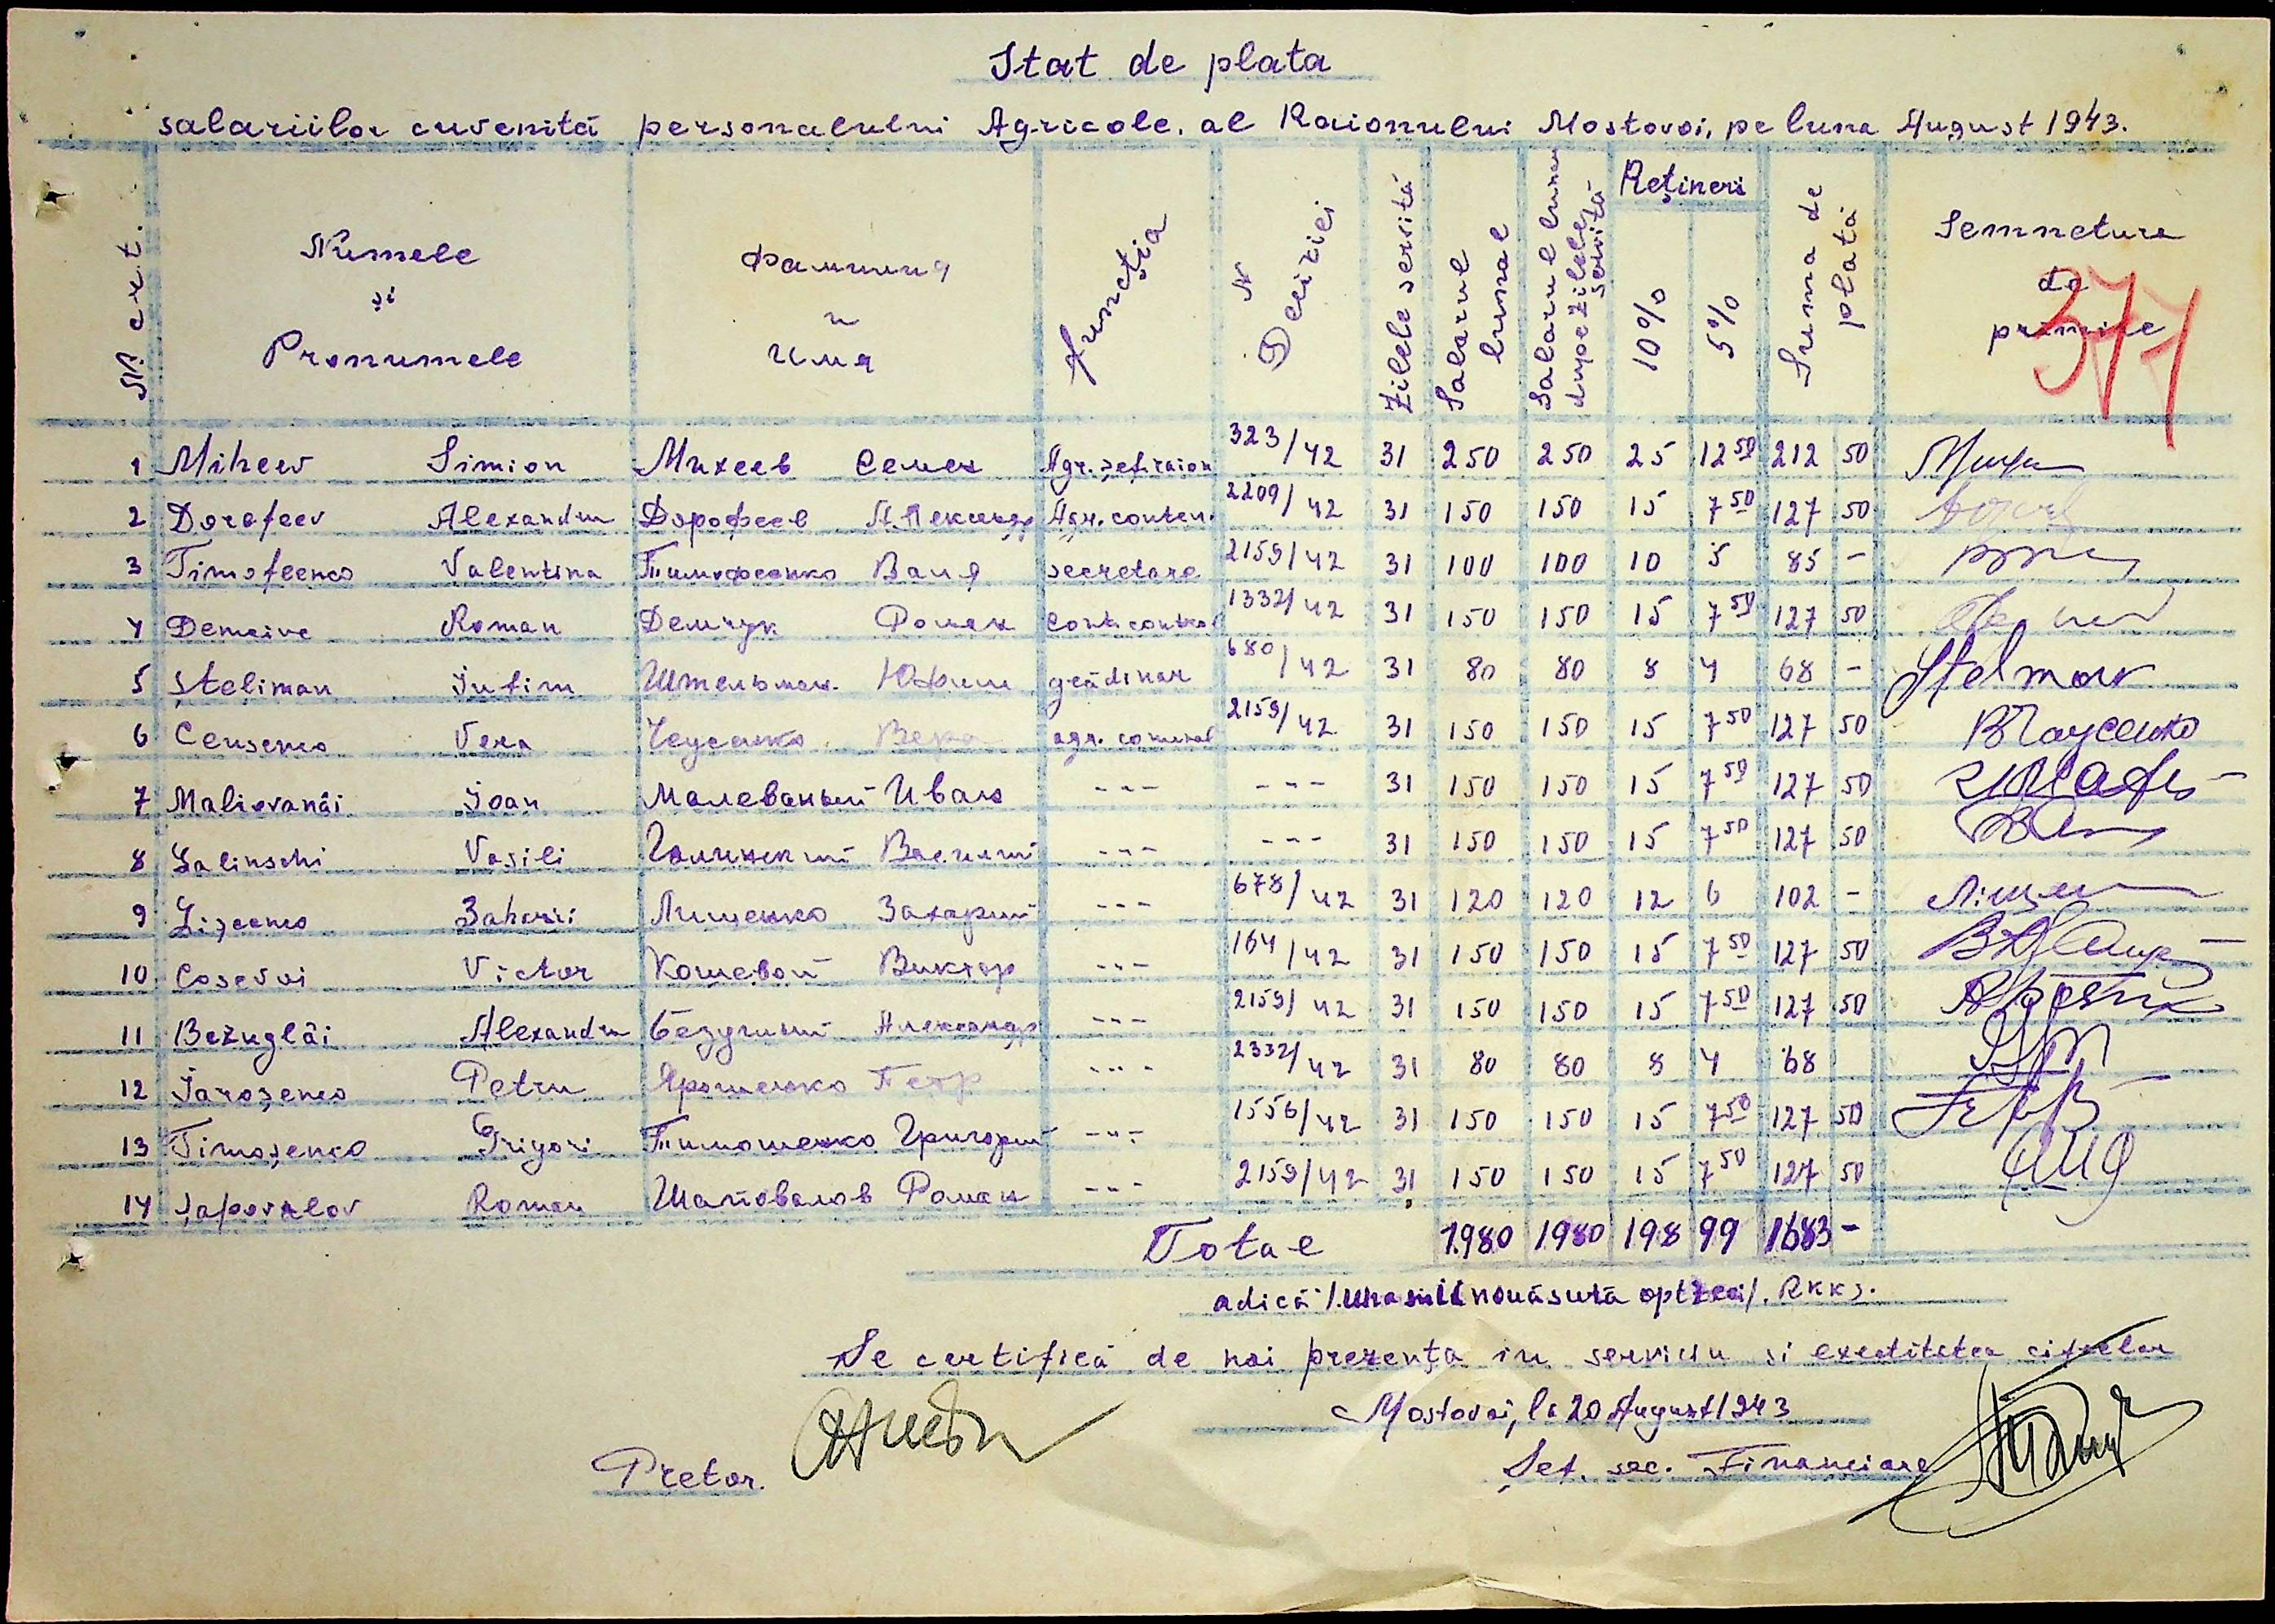 Stat de plata
salariilor cuvenită personalului Agricole, al Raionului Mostovoi, pe luna August 1943.
Nr. crt. Numele și Pronumele Фамилия и Имя Funcția N Deciziei Zilele servită Salarul lunal Salarul lunar dupe zilele servită Rețineri 10% 5% Suma de plată Semnetura de primire
377
1 Miheev Simion Михеев Семен Agr. șef raion 323/42 31 250 250 25 12 50 212 50
2 Dorofeev Alexandru Дорофеев Александр Agr. conten. 2209/42 31 150 150 15 7 50 127 50
3 Timofeenco Valentina Тимофеенко Валя secretare 2159/42 31 100 100 10 5 85 -
4 Demciuc Roman Демчук Роман cont. control 1332/42 31 150 150 15 7 50 127 50
5 Șteliman Iufim Штельман Юфим grădinar 680/42 31 80 80 8 4 68 - Stelmax
6 Ceusenco Vera Чеусенко Вера agr. comunal 2159/42 31 150 150 15 7 50 127 50
7 Malievanâi Ioan Малеваный Иван -"- -"- 31 150 150 15 7 50 127 50
8 Galinschi Vasili Галинский Василий -"- -"- 31 150 150 15 7 50 127 50
9 Lișcenco Zaharii Лищенко Захарий -"- 678/42 31 120 120 12 6 102 -
10 Coșevoi Victor Кошевой Виктор -"- 164/42 31 150 150 15 7 50 127 50
11 Bezuglâi Alexandru Безуглый Александр -"- 2159/42 31 150 150 15 7 50 127 50
12 Iaroșenco Petru Ярошенко Петр -"- 2332/42 31 80 80 8 4 68
13 Timoșenco Grigori Тимошенко Григорий -"- 1556/42 31 150 150 15 7 50 127 50
14 Șapovalov Roman Шаповалов Роман -"- 2159/42 31 150 150 15 7 50 127 50
Total 1980 1980 198 99 1683 -
adică /. una mii nouăsută optzeci /. RKKS.
Se certifică de noi prezența in serviciu si exactitatea cifrelor
Mostovoi, la 20 August 1943
Pretor. Șef. sec. Financiare